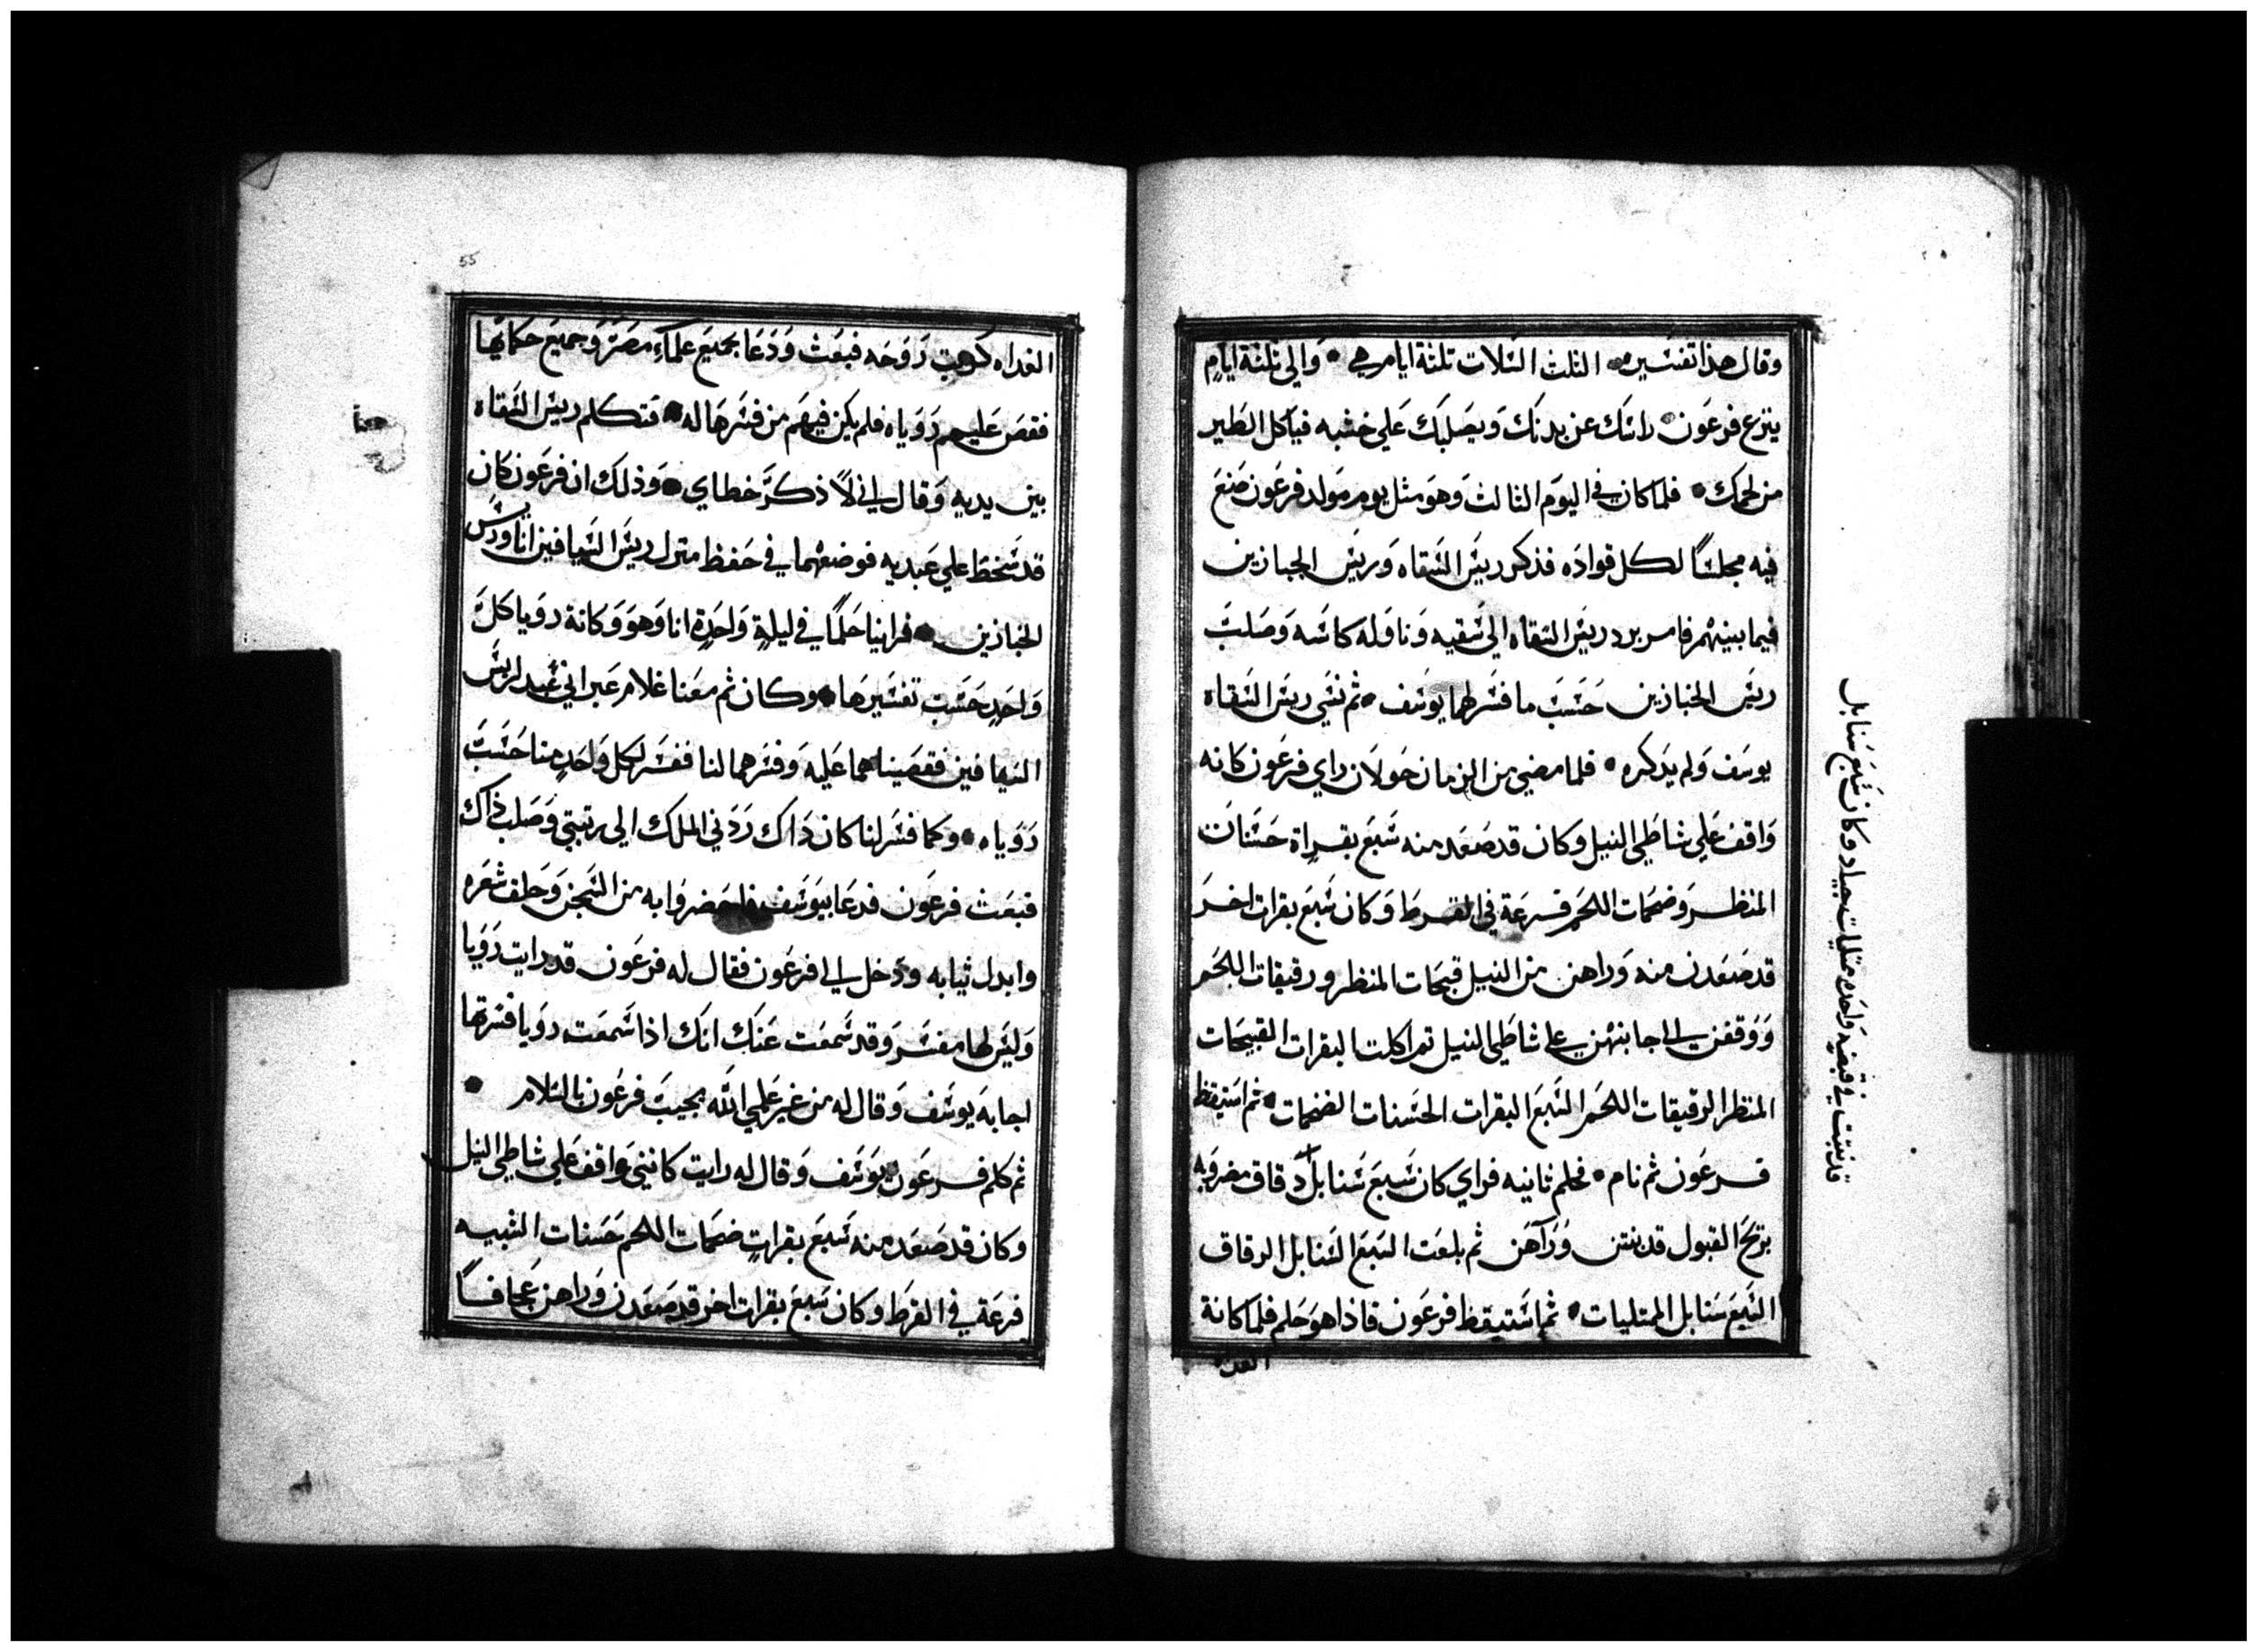 وقال هذا تفسيره • الثلث السلات تلثة ايام هي • والي تلثة ايام
ينزع فرعون راسك عن بدنك ويصلبك علي خشبه فياكل الطير
من لحمك • فلما كان في اليوم الثالث وهو مثل يوم مولد فرعون صنع
فيه مجلسًا لكل قواده فذكر ريس السقاه وريس الخبازين
فيما بينهم فامر برد ريس السقاه الي سقيه وناوله كاسه وصلب
ريس الخبازين حسب ما فسر لهما يوسف • ثم نسي ريس السقاه
يوسف ولم يذكره • فلما مضي من الزمان حولان راي فرعون كانه
واقف علي شاطي النيل وكان قد صعد منه سبع بقراة حسنات
المنظر وضخمات اللحم فرعة في القرط وكان سبع بقرات اخر
قد صعدن منه وراهن من النيل قبيحات المنظر ورقيقات اللحم
ووقفن الي جانبهن علي شاطي النيل ثم اكلت البقرات القبيحات
المنظر الرقيقات اللحم السبع البقرات الحسنات الضخمات • ثم استيقظ
فرعون ثم نام • فحلم ثانيه فراي كان سبع سنابل دقاق مضروبه
بريح القبول قد نبتن ورآهن ثم بلعت السبع السنابل الرقاق
السبع سنابل الممتليات • ثم استيقظ فرعون فاذا هو حلم فلما كانة
الغداه
قد نبتت في قبضه واحده ممتليات جياد وكان سبع سنابل
55
الغداه كربت روحه فبعث ودعا بجميع علماء مصر وجميع حكمائها
فقص عليهم روياه فلم يكن فيهم من فسرها له • فتكلم ريس السقاه
بين يديه وقال اني لأذكر خطاي • وذلك ان فرعون كان
قد سخط علي عبديه فوضعهما في حفظ منزل ريس السيافين انا وريس
الخبازين • فراينا حلمًا في ليلةٍ واحدةٍ انا وهو وكانة رويا كل
واحدٍ حسب تفسيرها • وكان ثم معنا غلام عبراني عبد لريس
السيافين فقصيناهما عليه وفسرهما لنا ففسر لكل واحدٍ منا حسب
روياه • وكما فسر لنا كان ذاك ردني الملك الي رتبتي وصلب ذاك
فبعث فرعون فدعا بيوسف فاحضروا به من السجن وحلق شعره
وابدل ثيابه ودخل الي فرعون فقال له فرعون قد رايت رويا
وليس لها مفسر وقد سمعت عنك انك اذا سمعت رويا فسرتها
اجابه يوسف وقال له من غير علمي الله يجيب فرعون بالسلام •
ثم كلم فرعون يوسف وقال له رايت كانني واقف علي شاطي النيل
وكان قد صعد منه سبع بقراتٍ ضخمات اللحم حسنات الشبيه
فرعة في القرط وكان سبع بقرات اخر قد صعدن وراهن عجافًا